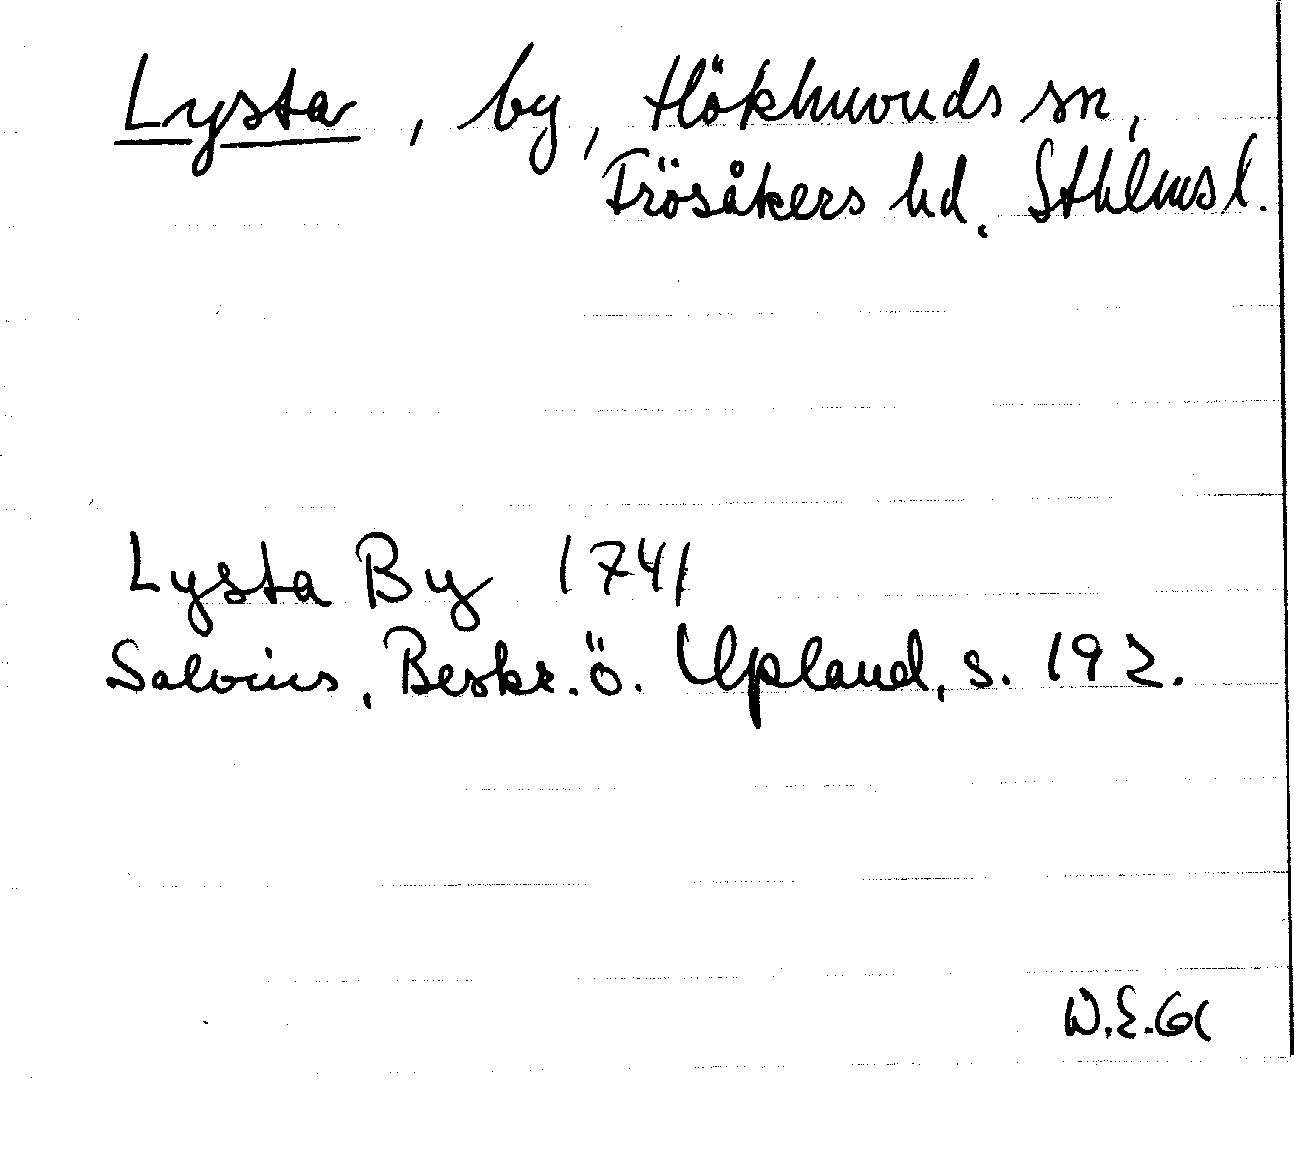 Lysta, by, Hökhuvuds sn,
Frösåkers hd. Sthlms l.
Lysta By 1741
Salvius, Beskr. ö. Upland, s. 192.